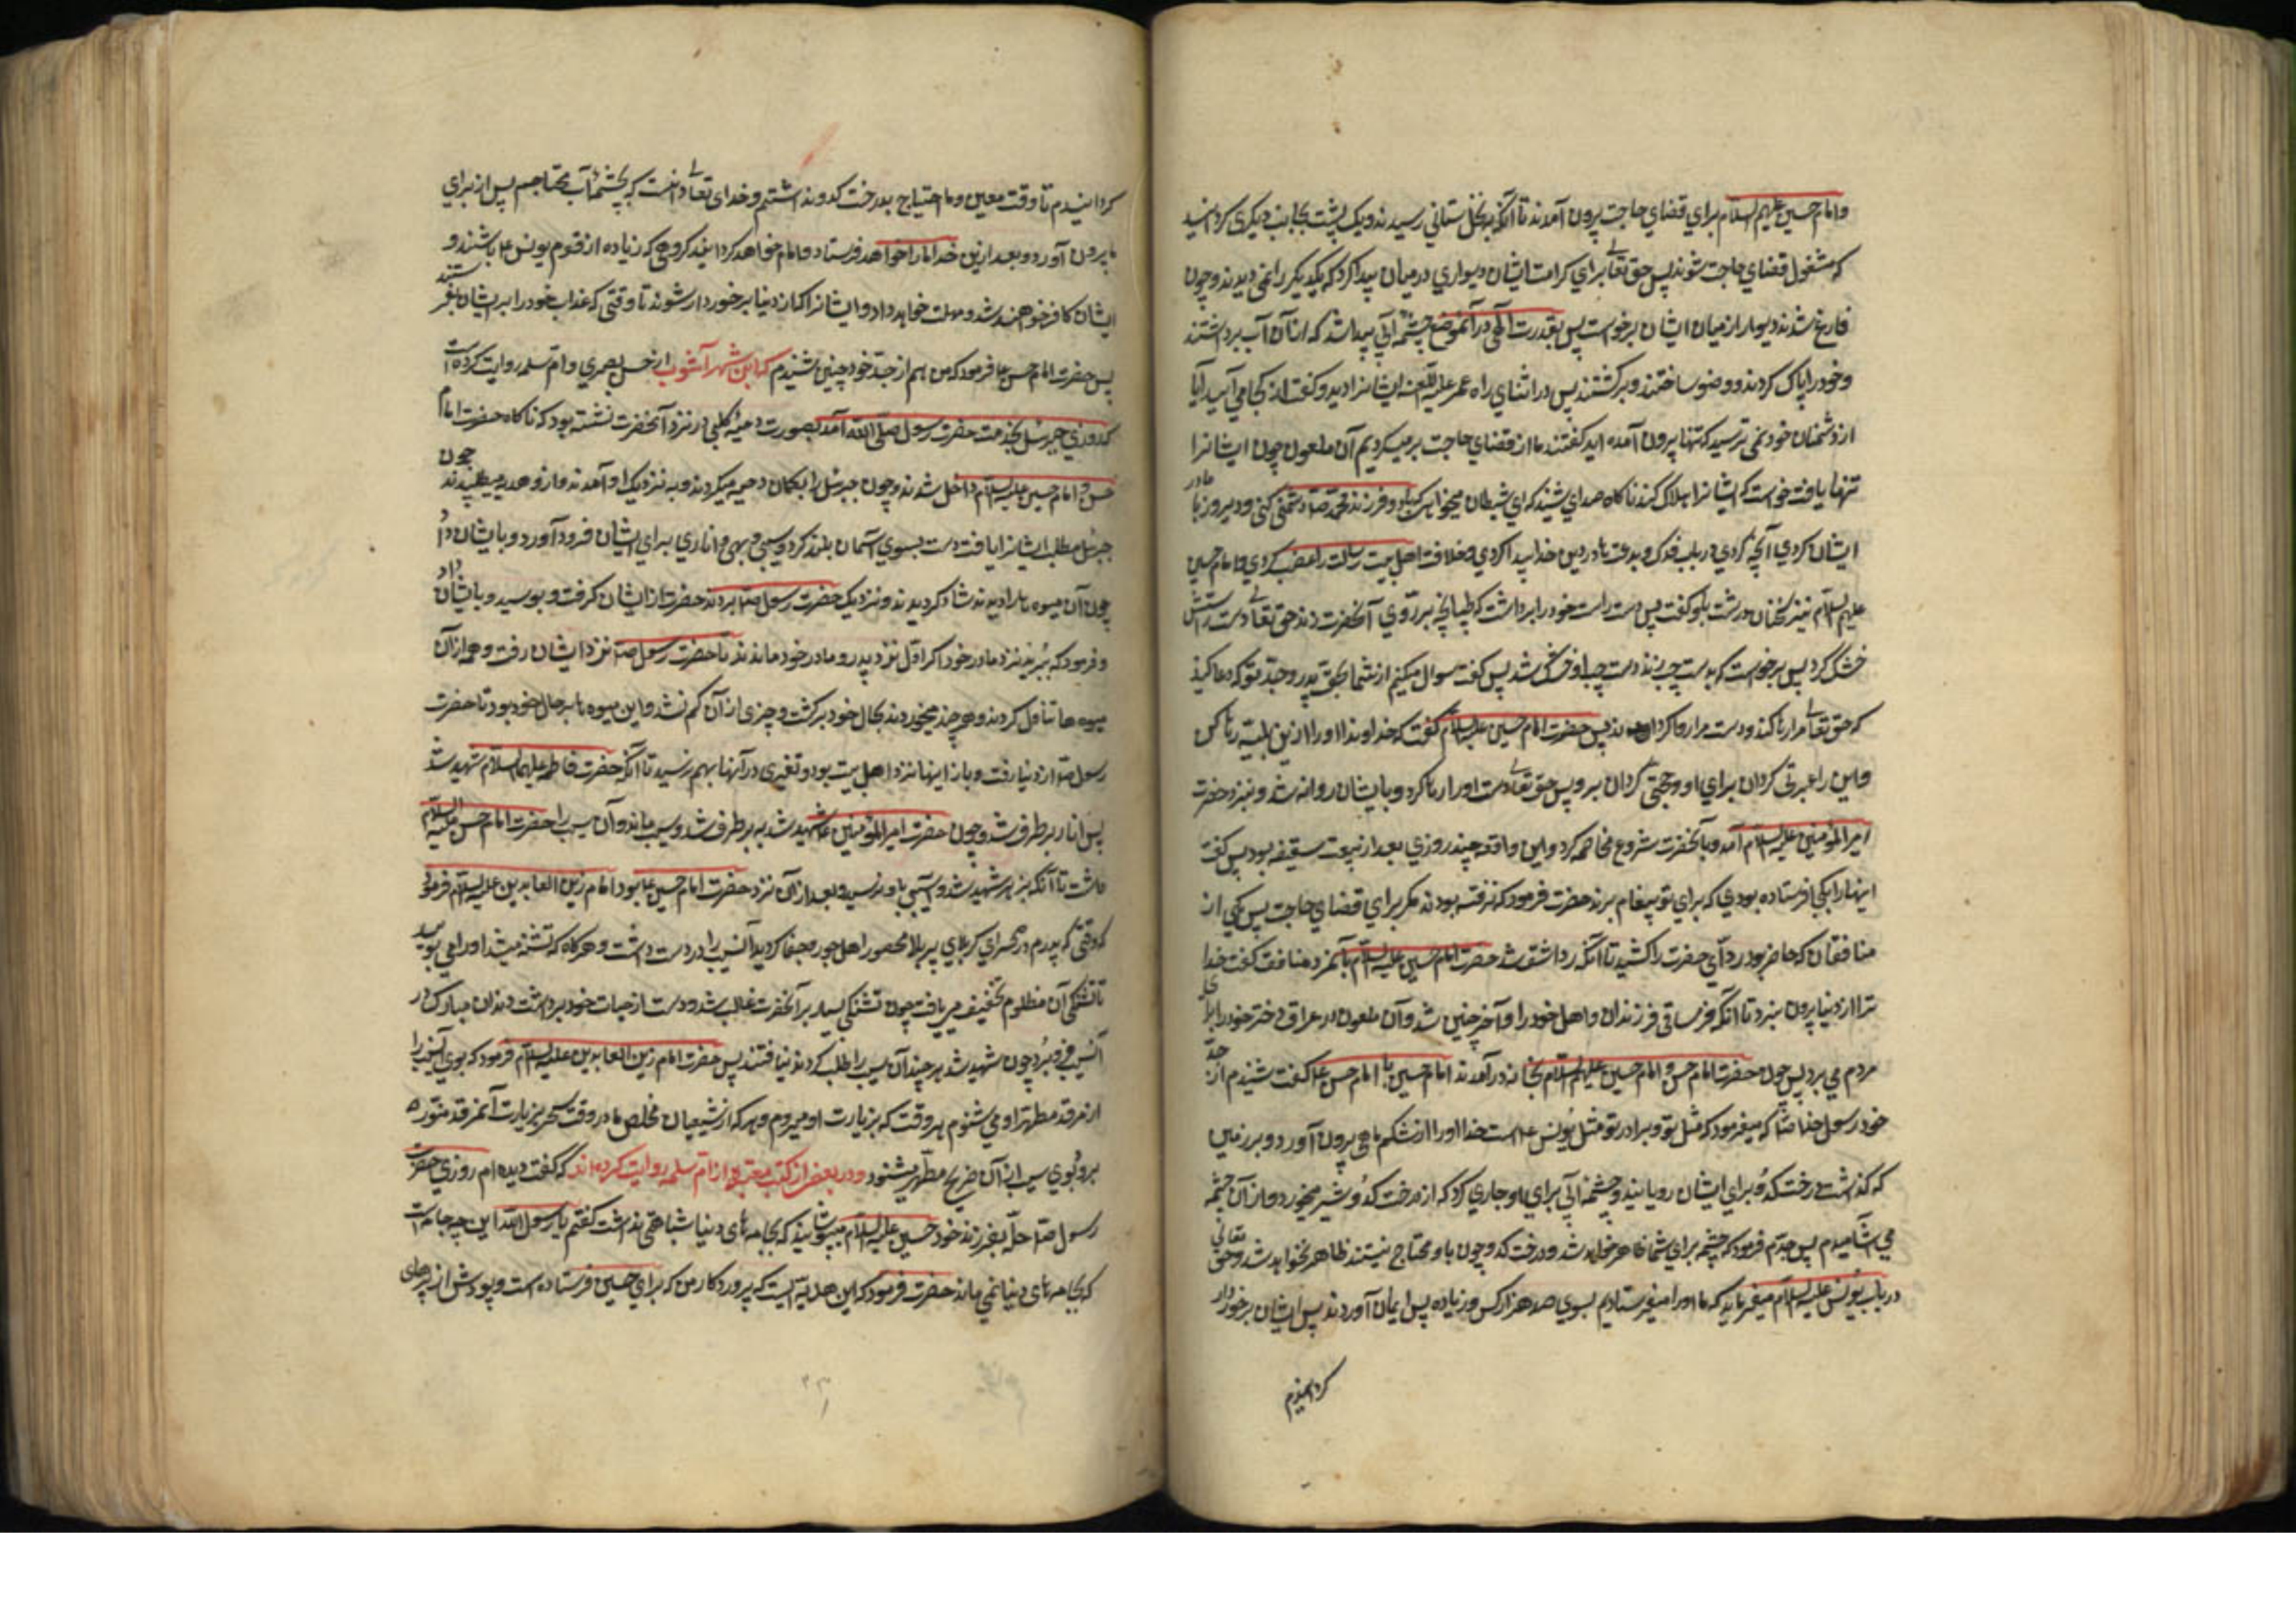 وامام حسین علیهم السلام برای قضای حاجت بیرون آمدند تا آنکه بنخل ستانی رسیدند و یک پشت بجانب دیکری کردانید
که مشغول قضای حاجت شوند پس حق تعالی برای کرامت ایشان دیواری درمیان پیدا کرد که یکدیکر را نمی دیدند و چون
فارغ شدند دیوار از میان ایشان برخواست پس بقدرت الهی در آنموضع چشمه آبی پیدا شد که از آن آب برداشتند
وخود را پاک کردند و وضو ساختند و برکشتند پس در اثنای راه عمر علیه اللعنه ایشانرا دید و کفت از کجا می آیید آیا
از دشمنان خود نمی ترسید که تنها بیرون آمده اید کفتند ما از قضای حاجت برمیکردیم آن ملعون چون ایشانرا
تنها یافت خواست که ایشانرا هلاک کند ناکاه صدای شنید که ای شیطان میخواهی که با دو فرزند محمد ص دشمنی کنی و دیروز با مادر
ایشان کردی آنچه کردی در باب فدک و بدعت ها در دین خدا پیدا کردی و خلافت اهل بیت رسالت را غصب کردی و امام حسین
علیه السلام نیز سخنان درشت باو کفت پس دست راست خود را برداشت که طپانچه بر روی آنحضرت زند حق تعالی دست راستش
خشک کرد پس برخواست که بدست چپ زند دست چپ او خشک شد پس کفت سوال میکنم از شما بحق پدر و جد تو که دعا کنید
که حق تعالی مرا رها کند و دست مرا روا کرداند پس حضرت امام حسین علیه السلام کفت که خداوندا او را ازین بلیه رها کن
واین را عبرتی کردان برای او و حجتی کردان بر او پس حق تعالی دست او را رها کرد و با ایشان روانه شد و بنزد حضرت
امیرالمومنین علیه السلام آمد و با آنحضرت شروع مخاصمه کرد و این واقعه چند روزی بعد از بیعت سقیفه بود پس کفت
اینها را بکجا فرستاده بودی که برای تو پیغام برند حضرت فرمود که نرفته بودند مکر برای قضای حاجت پس یکی از
منافقان که حاضر بود ردای حضرت را کشید تا آنکه ردا شق شد حضرت امام حسین علیه السلام بآنمرد منافق کفت خدا
ترا از دنیا بیرون نبرد تا آنکه فرساقی فرزندان و اهل خود را و آخر چنین شد و آن ملعون در عراق دختر خود را برای
مردم می برد پس چون حضرت امام حسن و امام حسین علیهم السلام بخانه درآمدند امام حسین با امام حسن ع کفت شنیدم از جد
خود رسول خدا ص که میفرمود که مثل تو و برادر تو مثل یونس ع است خدا او را از شکم ماهی بیرون آورد و بر زمین
که کذاشت درخت کدو برای ایشان رویانید و چشمه آبی برای او جاری کرد که از درخت کدو شیر میخورد و از آن چشمه
می آشامیدم پس جدم فرمود که چشمه برای شما ظاهر خواهد شد و درخت کدو چون باو محتاج نیستند ظاهر نخواهد شد و حق تعالی
در باب یونس علیه السلام میفرماید که ما او را میفرستادیم بسوی صد هزار کس و زیاده پس ایمان آوردند پس ایشان برخوردار
کردانیدم
کردانیدم تا وقت معین و ما احتیاج بدرخت کدو نداشتیم و خدای تعالی دانست که بچشمه آب محتاجیم پس از برای
ما بیرون آورد و بعد ازین خدا ما را خواهد فرستاد و امام خواهد کردانید کروهی که زیاده از قوم یونس ع باشند و
ایشان کافر خواهند شد و مهلت خواهد داد و ایشانرا که از دنیا برخوردار شوند تا وقتی که عذاب خود را بر ایشان بفرستند
پس حضرت امام حسن ع فرمود که من هم از جد خود چنین شنیدم که ابن شهر آشوب از حسن بصری و ام سلمه روایت کرده است
که روزی جبرئیل بخدمت حضرت رسول صلی الله آمد بصورت دحیه کلبی در نزد آنحضرت نشسته بود که ناکاه حضرت امام
حسن و امام حسین علیه السلام داخل شدند و چون جبرئیل را بکمان دحیه میکردند و به نزدیک او آمدند و از او هدیه میطلبیدند چون
جبرئیل مطلب ایشانرا یافت دست بسوی آسمان بلند کرد و سیبی و بهی و اناری برای ایشان فرود آورد و بایشان داد
چون آن میوه ها را دیدند شاد کردیدند و نزدیک حضرت رسول ص بردند حضرت از ایشان کرفت و بوسید و بایشان داد
و فرمود که ببرید نزد مادر خود اکر اول نزد پدر و مادر خود ماندند تا حضرت رسول ص نزد ایشان رفت و همه از آن
میوه ها تناول کردند و هر چند میخوردند بحال خود برکشت و چیزی از آن کم نشد و این میوه ها بر حال خود بود تا حضرت
رسول ص از دنیا رفت و باز اینها نزد اهل بیت بود و تغیری در آنها بهم نرسید تا آنکه حضرت فاطمه علیها السلام شهید شد
پس انار برطرف شد و چون حضرت امیرالمومنین ع شهید شد به برطرف شد و سیب ماند و آن سیب را حضرت امام حسن علیه السلام
داشت تا آنکه بزهر شهید شد و آسیبی باو نرسید و بعد از آن نزد حضرت امام حسین ع بود امام زین العابدین علیه السلام فرمود
که وقتی که پدرم در صحرای کربلای پر بلا محصور اهل جور و جفا کردید آن سیب را در دست داشت و هرکاه که تشنه میشد او را می بویید
تا تشنکی آن مظلوم تخفیف می یافت چون تشنکی بسیار بر آنحضرت غالب شد و دست از حیات خود برداشت دندان مبارک در
آن سیب فرو برد چون شهید شد هر چند آن سیب را طلب کردند نیافتند پس حضرت امام زین العابدین علیه السلام فرمود که بوی آن سیب را
از مرقد مطهر او می شنوم هر وقت که بزیارت او میروم و هر که از شیعیان مخلص ما در وقت سحر بزیارت آنمرقد منوره
برود بوی سیب از آن ضریح مطهر میشنود و در بعض از کتب معتبره از ام سلمه روایت کرده اند که کفت دیده ام روزی حضرت
رسول ص حله بفرزند خود حسین علیه السلام میپوشانید که بجامه های دنیا شباهتی نداشت کفتم یا رسول الله این چه جامه است
که بجامه های دنیا نمی ماند حضرت فرمود که این هدیه ایست که پروردکار من که برای حسین فرستاده است و پودش از پرهای